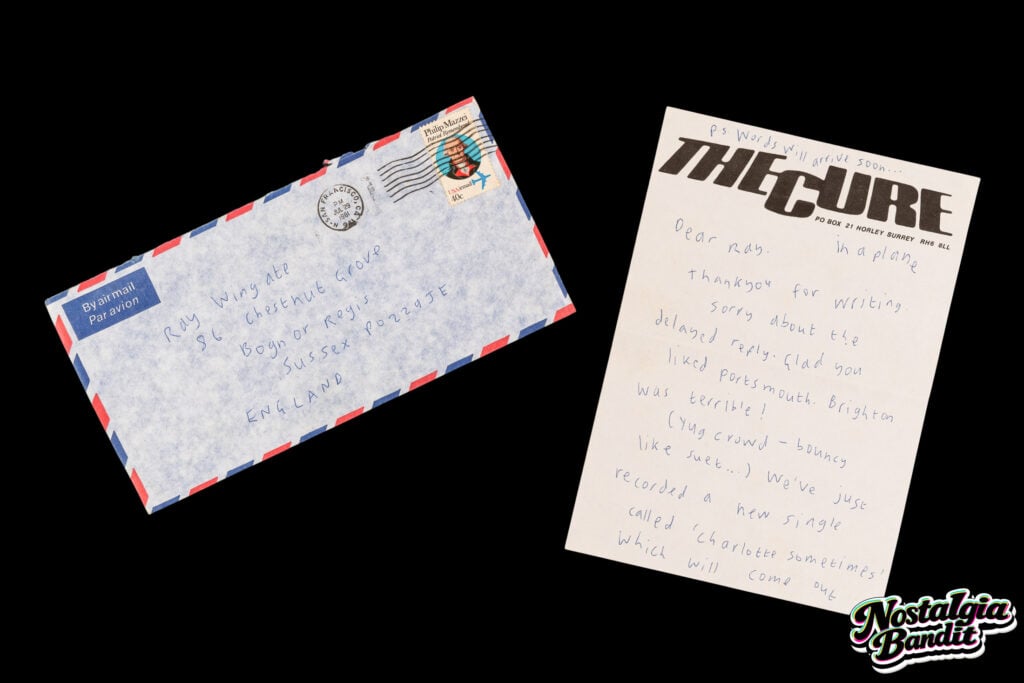 Philip Mazzei
Patriot Remembered
USAirmail
40c
SAN FRANCISCO, CA
PM
JUL 29
1981
By airmail
Par avion
Ray Wingate
86 Chestnut Grove
Bognor Regis
Sussex PO229JE
ENGLAND
ps. Words will arrive soon...
THE CURE
PO BOX 21 HORLEY SURREY RH6 8LL
Dear Ray. in a plane
Thankyou for writing.
Sorry about the
delayed reply. Glad you
liked Portsmouth. Brighton
was terrible!
(Yug crowd – bouncy
like suet...) We've just
recorded a new single
called 'Charlotte sometimes'
which will come out
Nostalgia
Bandit